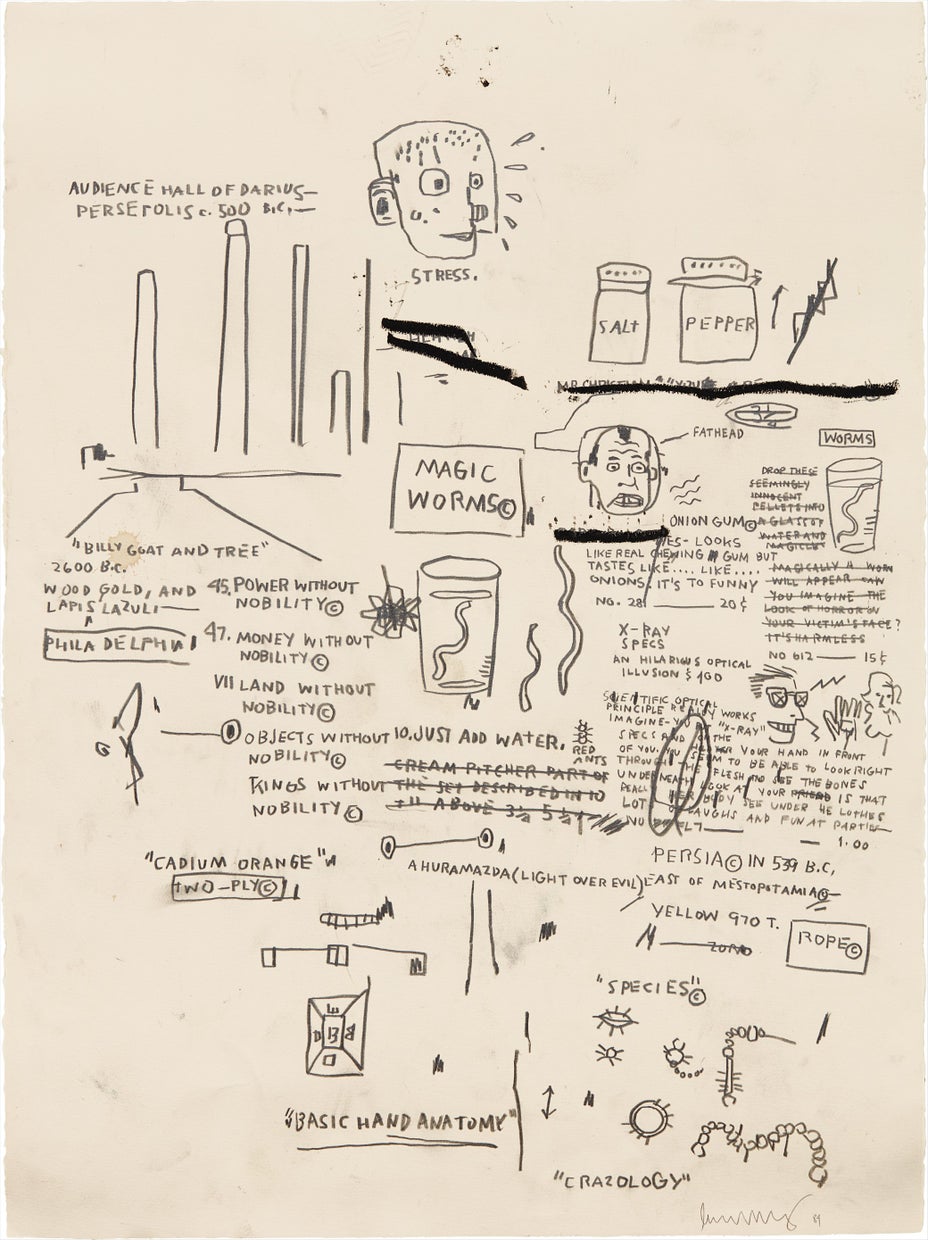 AUDIENCE HALL OF DARIUS—
PERSEPOLIS c. 500 B.C.—
STRESS.
SALT
PEPPER
FATHEAD
3½
WORMS
DROP THESE
SEEMINGLY
INNOCENT
PELLETS INTO
A GLASS OF
WATER AND
MAGICLLY
MAGICALLY A WORM
WILL APPEAR CAN
YOU IMAGINE THE
LOOK OF HORROR ON
YOUR VICTIM'S FACE?
IT'S HARMLESS
NO 612 — 15¢
MAGIC
WORMS©
ONION GUM©
YES- LOOKS
LIKE REAL CHEWING GUM BUT
TASTES LIKE.... LIKE....
ONIONS. IT'S TO FUNNY
NO. 28 — 20¢
"BILLY GOAT AND TREE"
2600 B.C.
WOOD GOLD, AND
LAPIS LAZULI—
PHILADELPHIA
45. POWER WITHOUT
NOBILITY©
47. MONEY WITHOUT
NOBILITY©
VII LAND WITHOUT
NOBILITY©
OBJECTS WITHOUT
NOBILITY©
KINGS WITHOUT
NOBILITY©
10. JUST ADD WATER.
CREAM PITCHER PART OF
THE SET DESCRIBED IN 10
+11 ABOVE 3¼ 5¼
RED
ANTS
X-RAY
SPECS
AN HILARIOUS OPTICAL
ILLUSION $1.00
SCIENTIFIC OPTICAL
PRINCIPLE REALLY WORKS
IMAGINE- "X-RAY"
SPECS AND THE
OF YOU. YOUR HAND IN FRONT
THROUGH THEM TO BE ABLE TO LOOK RIGHT
UNDERNEATH FLESH AND SEE THE BONES
LOOK AT YOUR FRIEND IS THAT
HER BODY SEE UNDER HE CLOTHES
LOT OF LAUGHS AND FUN AT PARTIES
1.00
"CADIUM ORANGE"
TWO-PLY©
AHURAMAZDA (LIGHT OVER EVIL) EAST OF MESTOPOTAMIA©—
PERSIA© IN 539 B.C,
YELLOW 970 T.
ROPE©
"SPECIES"©
"BASIC HAND ANATOMY"
"CRAZOLOGY"
89